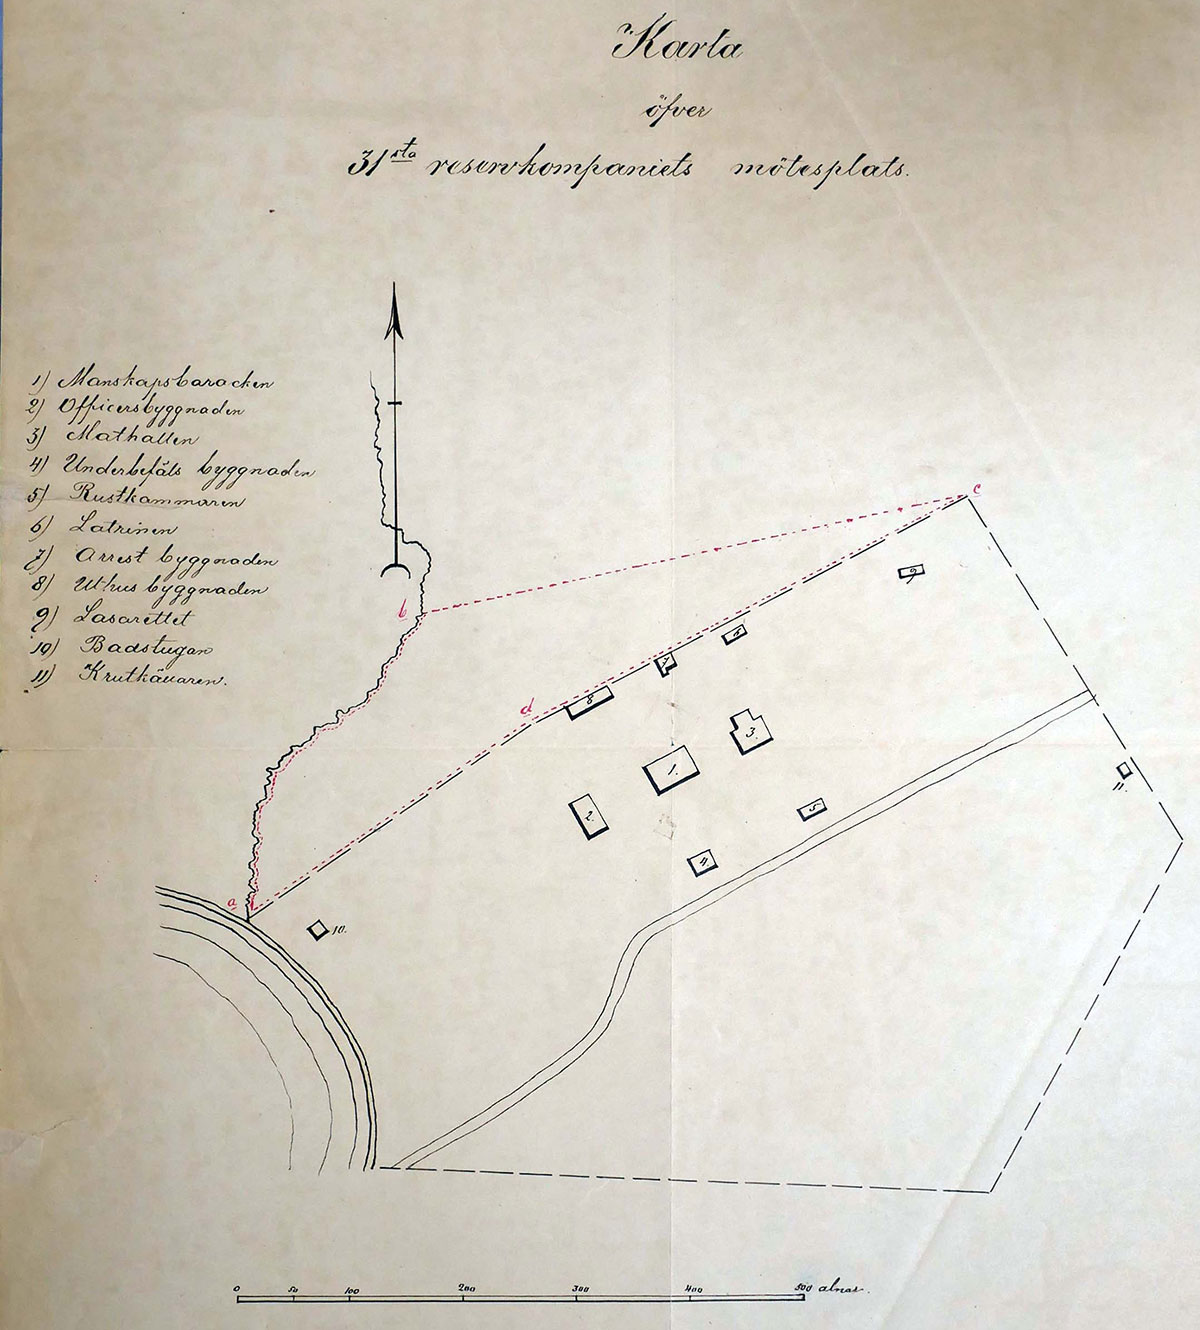 Karta
öfver
31sta reservkompaniets mötesplats.
1) Manskapsbaracken
2) Officersbyggnaden
3) Mathallen
4) Underbefäls byggnaden
5) Rustkammaren
6) Latrinen
7) Arrest byggnaden
8) Uthus byggnaden
9) Lasarettet
10) Badstugan
11) Krutkällaren.
c
9
b
6
7
d
8
3.
1.
11.
2.
5
4
a
10.
0 50 100 200 300 400 500 alnar.